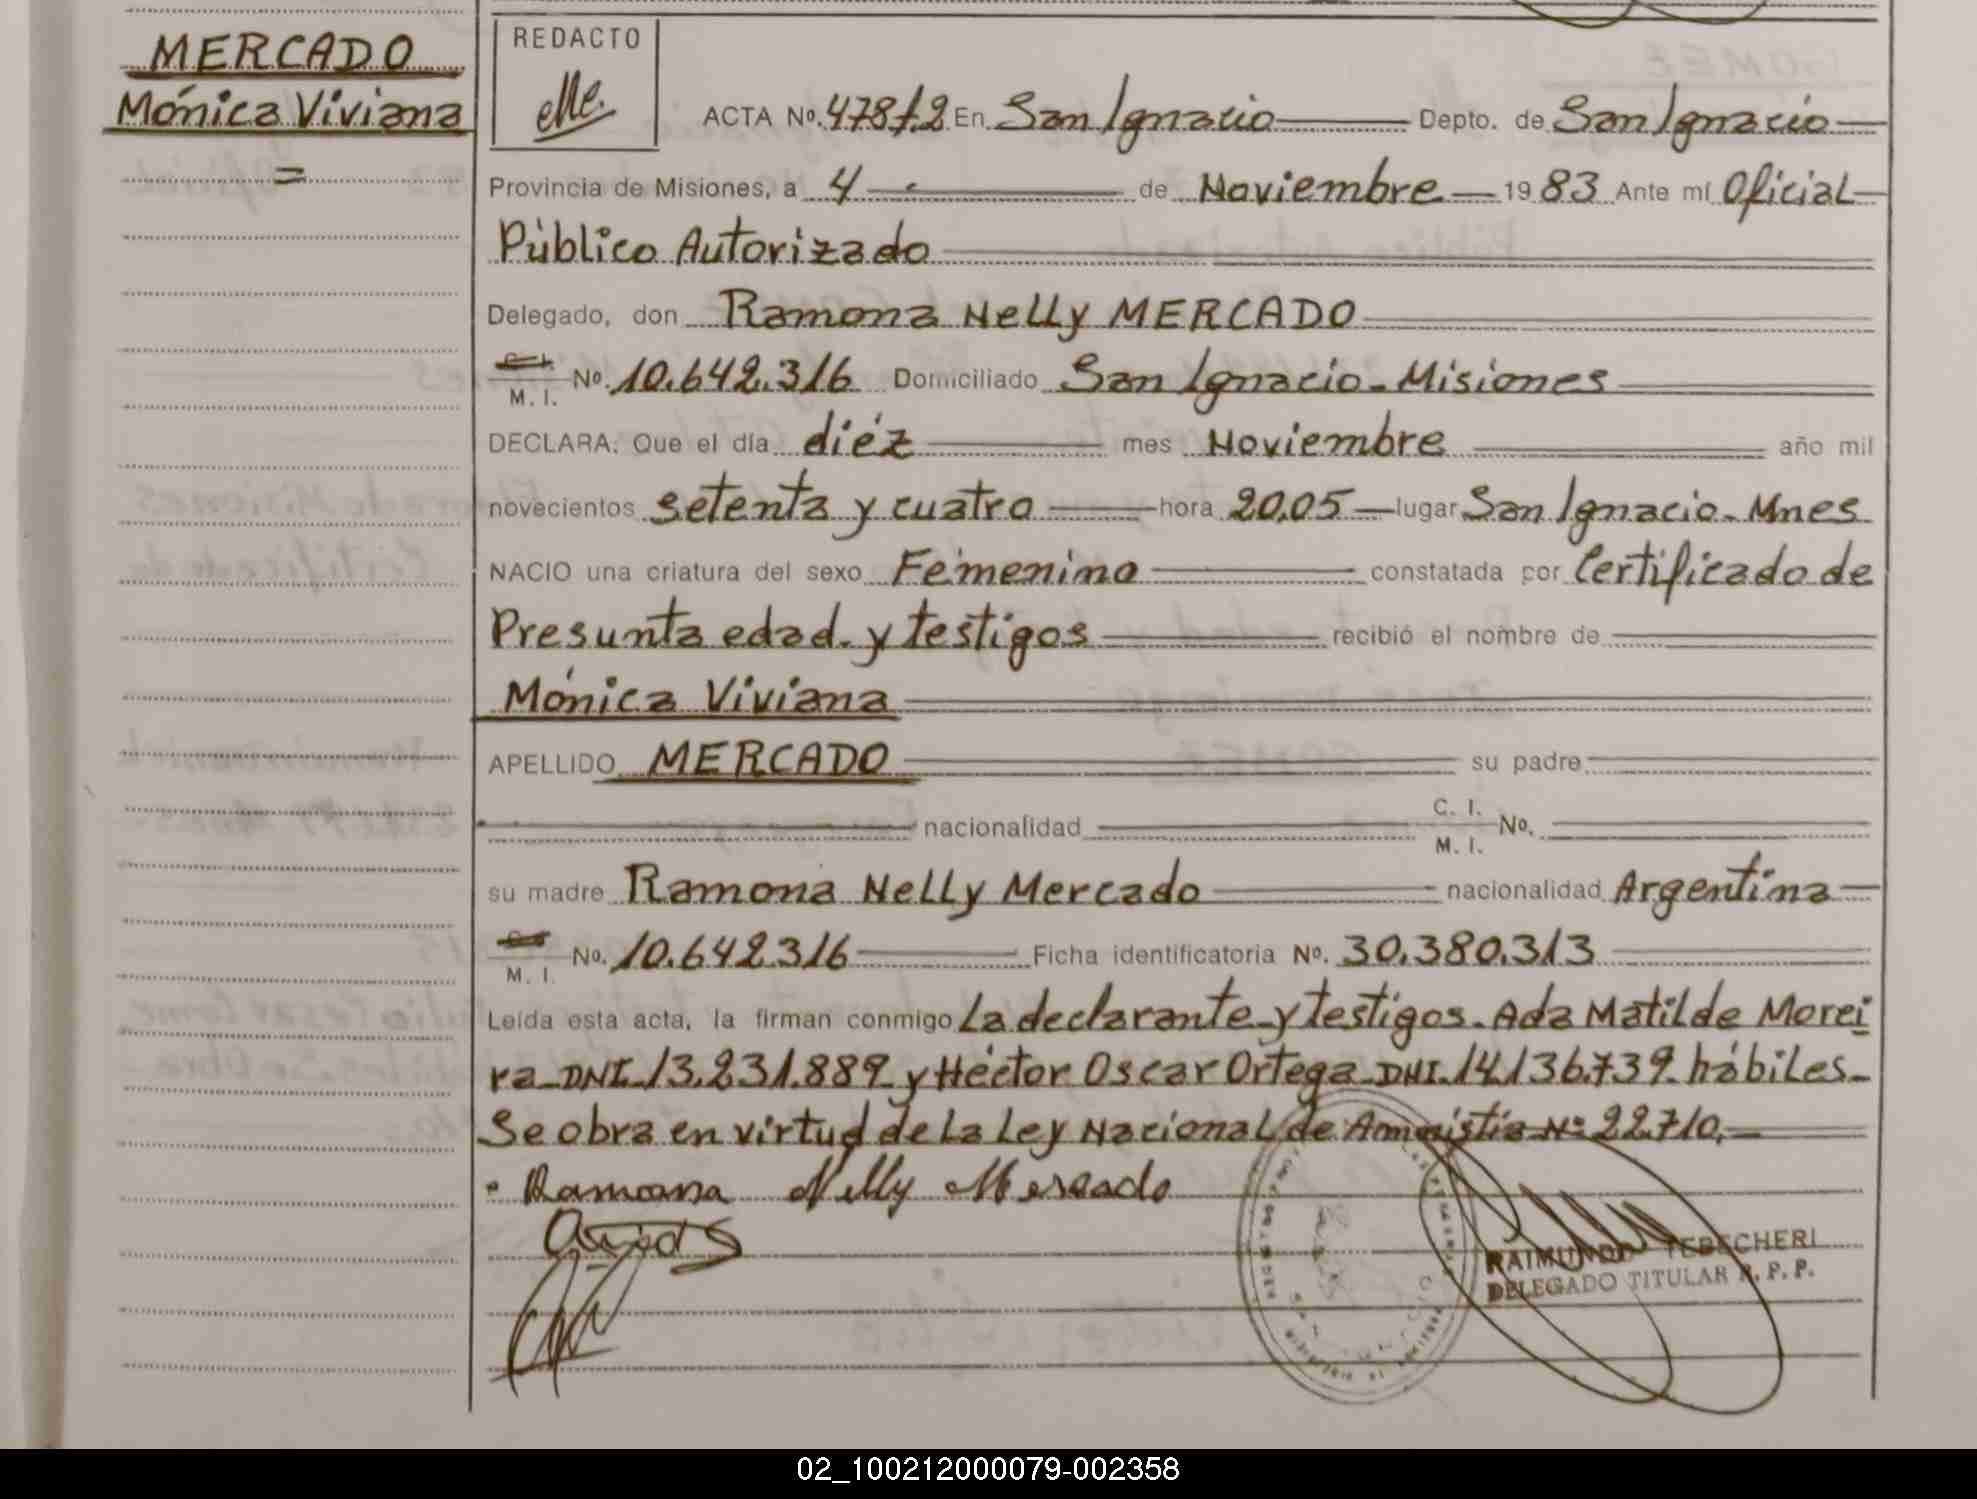 MERCADO
Mónica Viviana
=
REDACTO
ACTA Nº. 478/2 En San Ignacio Depto. de San Ignacio
Provincia de Misiones, a 4 de Noviembre 1983 Ante mí Oficial
Público Autorizado
Delegado, don Ramona Nelly MERCADO
M. I. Nº. 10.642.316 Domiciliado San Ignacio - Misiones
DECLARA: Que el día diéz mes Noviembre año mil
novecientos setenta y cuatro hora 20,05 lugar San Ignacio - Mnes
NACIO una criatura del sexo Femenino constatada por Certificado de
Presunta edad. y testigos recibió el nombre de
Mónica Viviana
APELLIDO MERCADO su padre
nacionalidad C. I. M. I. Nº.
su madre Ramona Nelly Mercado nacionalidad Argentina
M. I. Nº. 10.642.316 Ficha identificatoria Nº. 30.380.313
Leída esta acta, la firman conmigo La declarante y testigos. Ada Matilde Morei
ra DNI. 13.231.889 y Héctor Oscar Ortega DNI. 14.136.739 hábiles.
Se obra en virtud de La Ley Nacional de Amnistia Nº 22.710.
Ramona Nelly Mercado
RAIMUNDO TEBECHERI
DELEGADO TITULAR R. P. P.
02_100212000079-002358